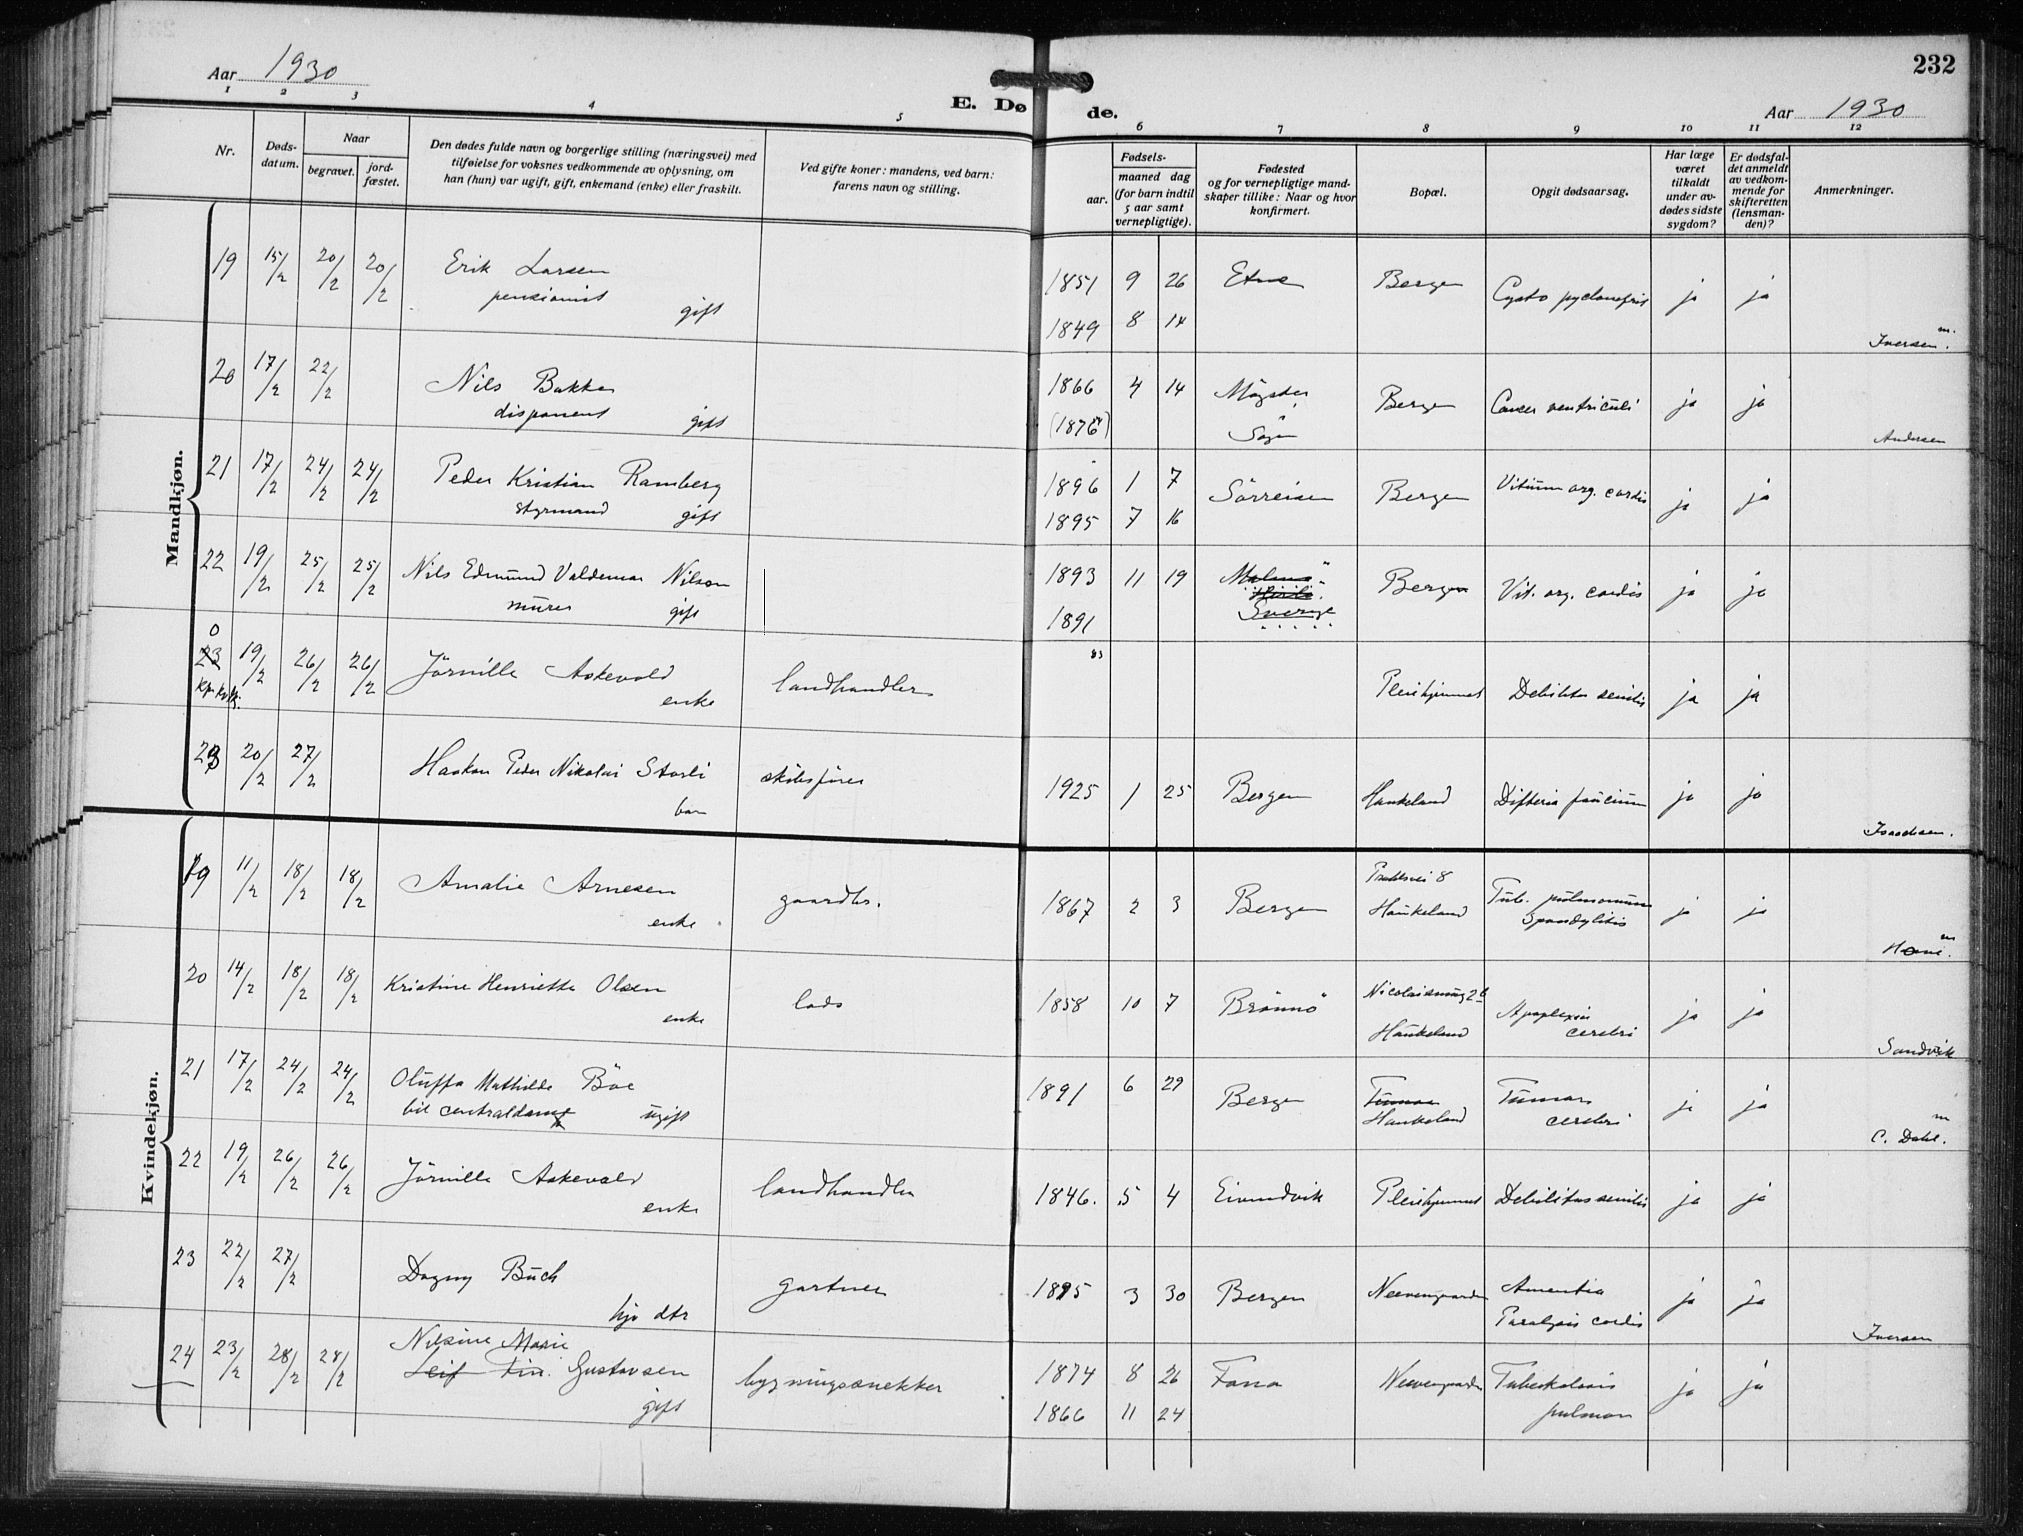 232
Aar 1930
E. Dø de.
Aar 1930
1 2 3 4 5 6 7 8 9 10 11 12
Nr.
Døds-datum.
Naar
begravet.
jord-fæstet.
Den dødes fulde navn og borgerlige stilling (næringsvei) med
tilføielse for voksnes vedkommende av oplysning, om
han (hun) var ugift, gift, enkemand (enke) eller fraskilt.
Ved gifte koner: mandens, ved barn:
farens navn og stilling.
Fødsels-
aar.
maaned dag
(for barn indtil
5 aar samt
vernepligtige).
Fødested
og for vernepligtige mand-
skaper tillike: Naar og hvor
konfirmert.
Bopæl.
Opgit dødsaarsag.
Har læge
været
tilkaldt
under av-
dødes sidste
sygdom?
Er dødsfal-
det anmeldt
av vedkom-
mende for
skifteretten
(lensman-
den)?
Anmerkninger.
Mandkjøn.
19 15/2 20/2 20/2 Erik Larsen 1851 9 26 Etne Bergen Cysto pyelonefrit ja ja
pensionist gift 1849 8 14 Iversen m.
20 17/2 22/2 Nils Bakke 1866 4 14 Møgster Bergen Cancer ventriculi ja ja
disponent gift (1876) Andersen
21 17/2 24/2 24/2 Peder Kristian Ramberg 1896 1 7 Sörreisen Bergen Vitium org. cordis ja ja
styrmand gift 1895 7 16
22 19/2 25/2 25/2 Nils Edmund Valdemar Nilson 1893 11 19 Malmö Bergen Vit. org. cordis ja ja
murer gift 1891 Sverige
0
23 19/2 26/2 26/2 Jörnille Askevold landhandler Pleiehjemmet Debilitas senilis ja ja
enke
23 20/2 27/2 Haakon Peder Nikolai Storli skibsfører 1925 1 25 Bergen Haukeland Difteria faucium ja ja
barn Isachsen.
Kvindekjøn.
19 11/2 18/2 18/2 Amalie Arnesen gaardbr. 1867 2 3 Bergen Haukeland Tub. pulmonum ja ja
enke Spondylitis
20 14/2 18/2 18/2 Kristine Henriette Olsen lods 1858 10 7 Brönnö Haukeland Apoplexia ja ja
enke cerebri Sandvik
21 17/2 24/2 24/2 Oluffa Mathilde Böe 1891 6 29 Bergen Tumor Tumor ja ja
centraldame ugift Haukeland cerebri C. Dahl. m
22 19/2 26/2 26/2 Jörnille Askevold landhandler 1846. 5 4 Eivindvik Pleiehjemmet Debilitas senilis ja ja
enke
23 22/2 27/2 Dagny Buch gartner 1895 3 30 Bergen Neevengaarden Amentia ja ja
hjv dtr Paralysis cordis Iversen
Nilsine Marie
24 23/2 28/2 28/2 Leif Fin. Gustavsen bygningssnekker 1874 8 26 Fana Neevengaarden Tuberkulosis ja ja
gift 1866 11 24 pulmon